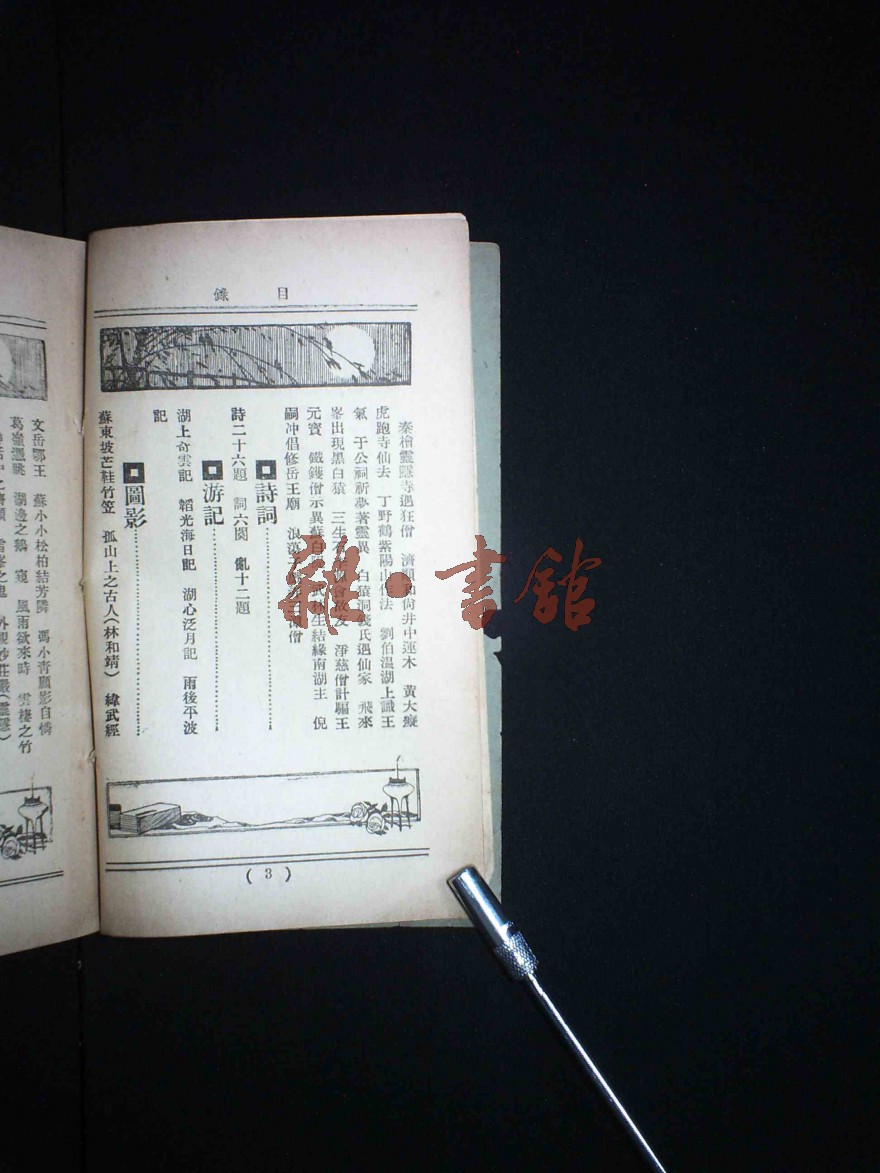 目錄
秦檜靈隱寺遇狂僧　濟顛和尙井中運木　黃大癡
虎跑寺仙去　丁野鶴紫陽山 法　劉伯溫湖上識王
氣　于公祠祈夢著靈異　白猿洞錢氏遇仙家　飛來
峯出現黑白猿　三生 故友　淨慈僧計騙王
元寶　鐵鏟僧示異蘇白 武林生結緣南湖主　倪
嗣冲倡修岳王廟　浪 僧
詩詞
詩二十六題　詞六闋　亂十二題
游記
湖上奇雲記　韜光海日記　湖心泛月記　雨後平波
記
圖影
蘇東坡芒鞋竹笠　孤山上之古人(林和靖)　緯武經
(3)
文岳鄂王　蘇小小松柏結芳隣　馮小青顧影自憐
葛嶺憑眺　湖邊之鵝　寇　風雨欲來時　雲棲之竹
之濟顛　雷峯之鬼　外觀妙莊嚴(靈隱)
雜·書館